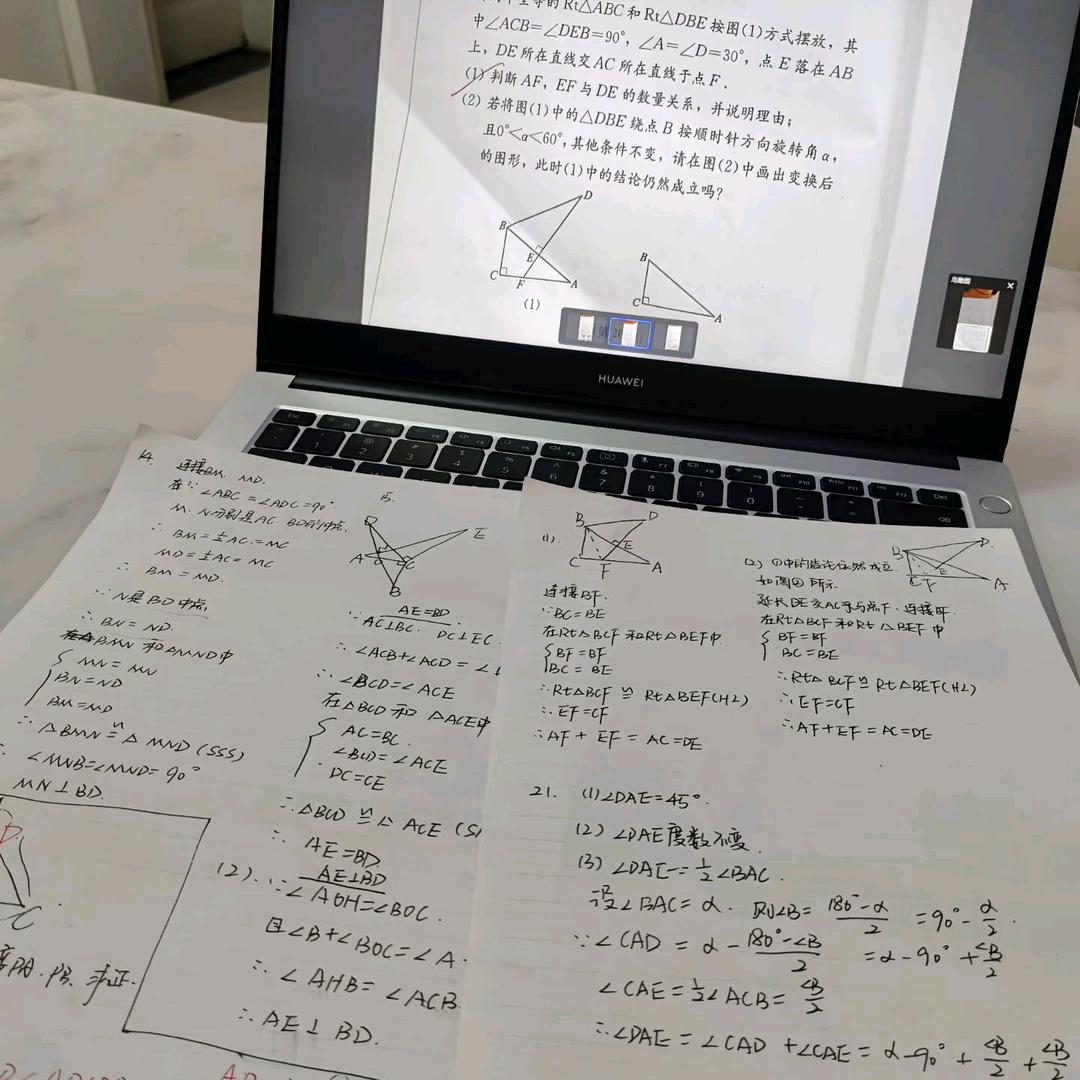 全等的Rt△ABC和Rt△DBE按图(1)方式摆放，其
中∠ACB=∠DEB=90°，∠A=∠D=30°，点E落在AB
上，DE所在直线交AC所在直线于点F.
(1)判断AF，EF与DE的数量关系，并说明理由；
(2)若将图(1)中的△DBE绕点B按顺时针方向旋转角α，
且0°<α<60°，其他条件不变，请在图(2)中画出变换后
的图形，此时(1)中的结论仍然成立吗？
D
B
E
C
F
A
(1)
B
C
A
鸟瞰图
HUAWEI
14.
连接BM. MD.
∵∠ABC=∠ADC=90°
M. N分别是AC BD的中点.
∴BM=½AC=MC
MD=½AC=MC
∴BM=MD.
∵N是BD中点,
∴BN=ND.
△BMN和△MND中
MN=MN
BN=ND
BM=MD
∴△BMN≌△MND(SSS)
∠MNB=∠MND=90°
MN⊥BD.
C
15.
D
E
A
O
C
B
AE=BD
∵AC⊥BC. DC⊥EC
∴∠ACB+∠ACD=∠
∴∠BCD=∠ACE
在△BCD和△ACE中
AC=BC.
∠BCD=∠ACE
DC=CE
∴△BCD≌△ACE
∴AE=BD.
(2).
AE⊥BD
∵∠AOH=∠BOC.
且∠B+∠BOC=∠A
∴∠AHB=∠ACB
∴AE⊥BD.
(1).
B
D
E
C
F
A
连接BF.
∵BC=BE
在Rt△BCF和Rt△BEF中
BF=BF
BC=BE
∴Rt△BCF≌Rt△BEF(HL)
∴EF=CF
∴AF+EF=AC=DE
(2)(1)中的结论仍然成立
如图②所示
延长DE交AC于点F.连接BF.
在Rt△BCF和Rt△BEF中
BF=BF
BC=BE
∴Rt△BCF≌Rt△BEF(HL)
∴EF=CF
∴AF+EF=AC=DE
B
D
E
C
F
A
21.
(1)∠DAE=45°.
(2)∠DAE度数不变.
(3)∠DAE=½∠BAC.
设∠BAC=α. 则∠B=(180°-α)/2=90°-α/2.
∵∠CAD=α-(180°-∠B)/2=α-90°+∠B/2
∠CAE=½∠ACB=∠B/2
∴∠DAE=∠CAD+∠CAE=α-90°+∠B/2+∠B/2